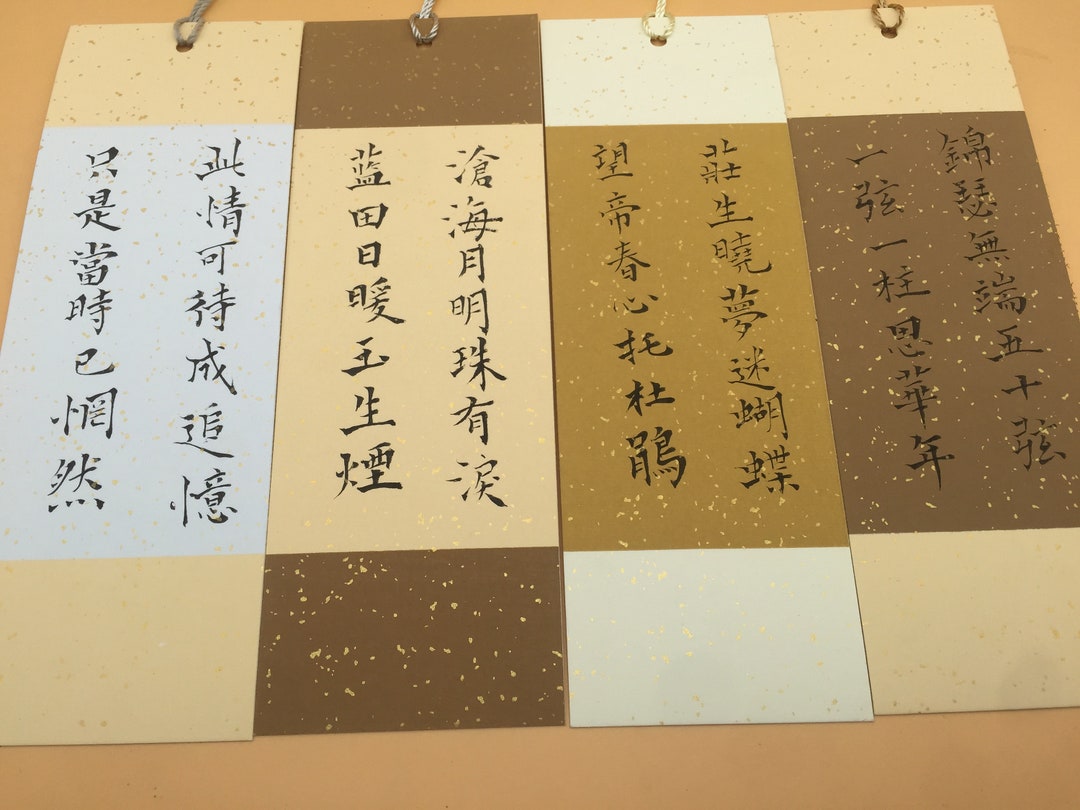 錦瑟無端五十弦
一弦一柱思華年
莊生曉夢迷蝴蝶
望帝春心托杜鵑
滄海月明珠有淚
蓝田日暖玉生煙
此情可待成追憶
只是當時已惘然